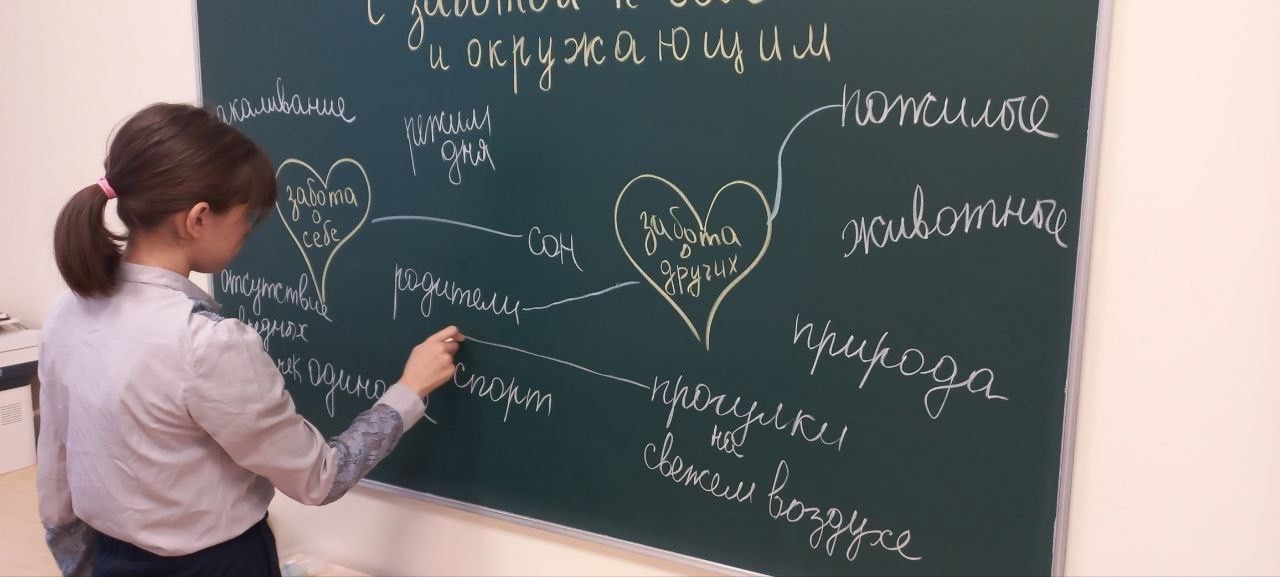 с заботой к себе
и окружающим
акаливание
режим
дня
забота
о
себе
сон
отсутствие
родители
забота
о
других
пожилые
животные
природа
спорт
прогулки
на
свежем воздухе